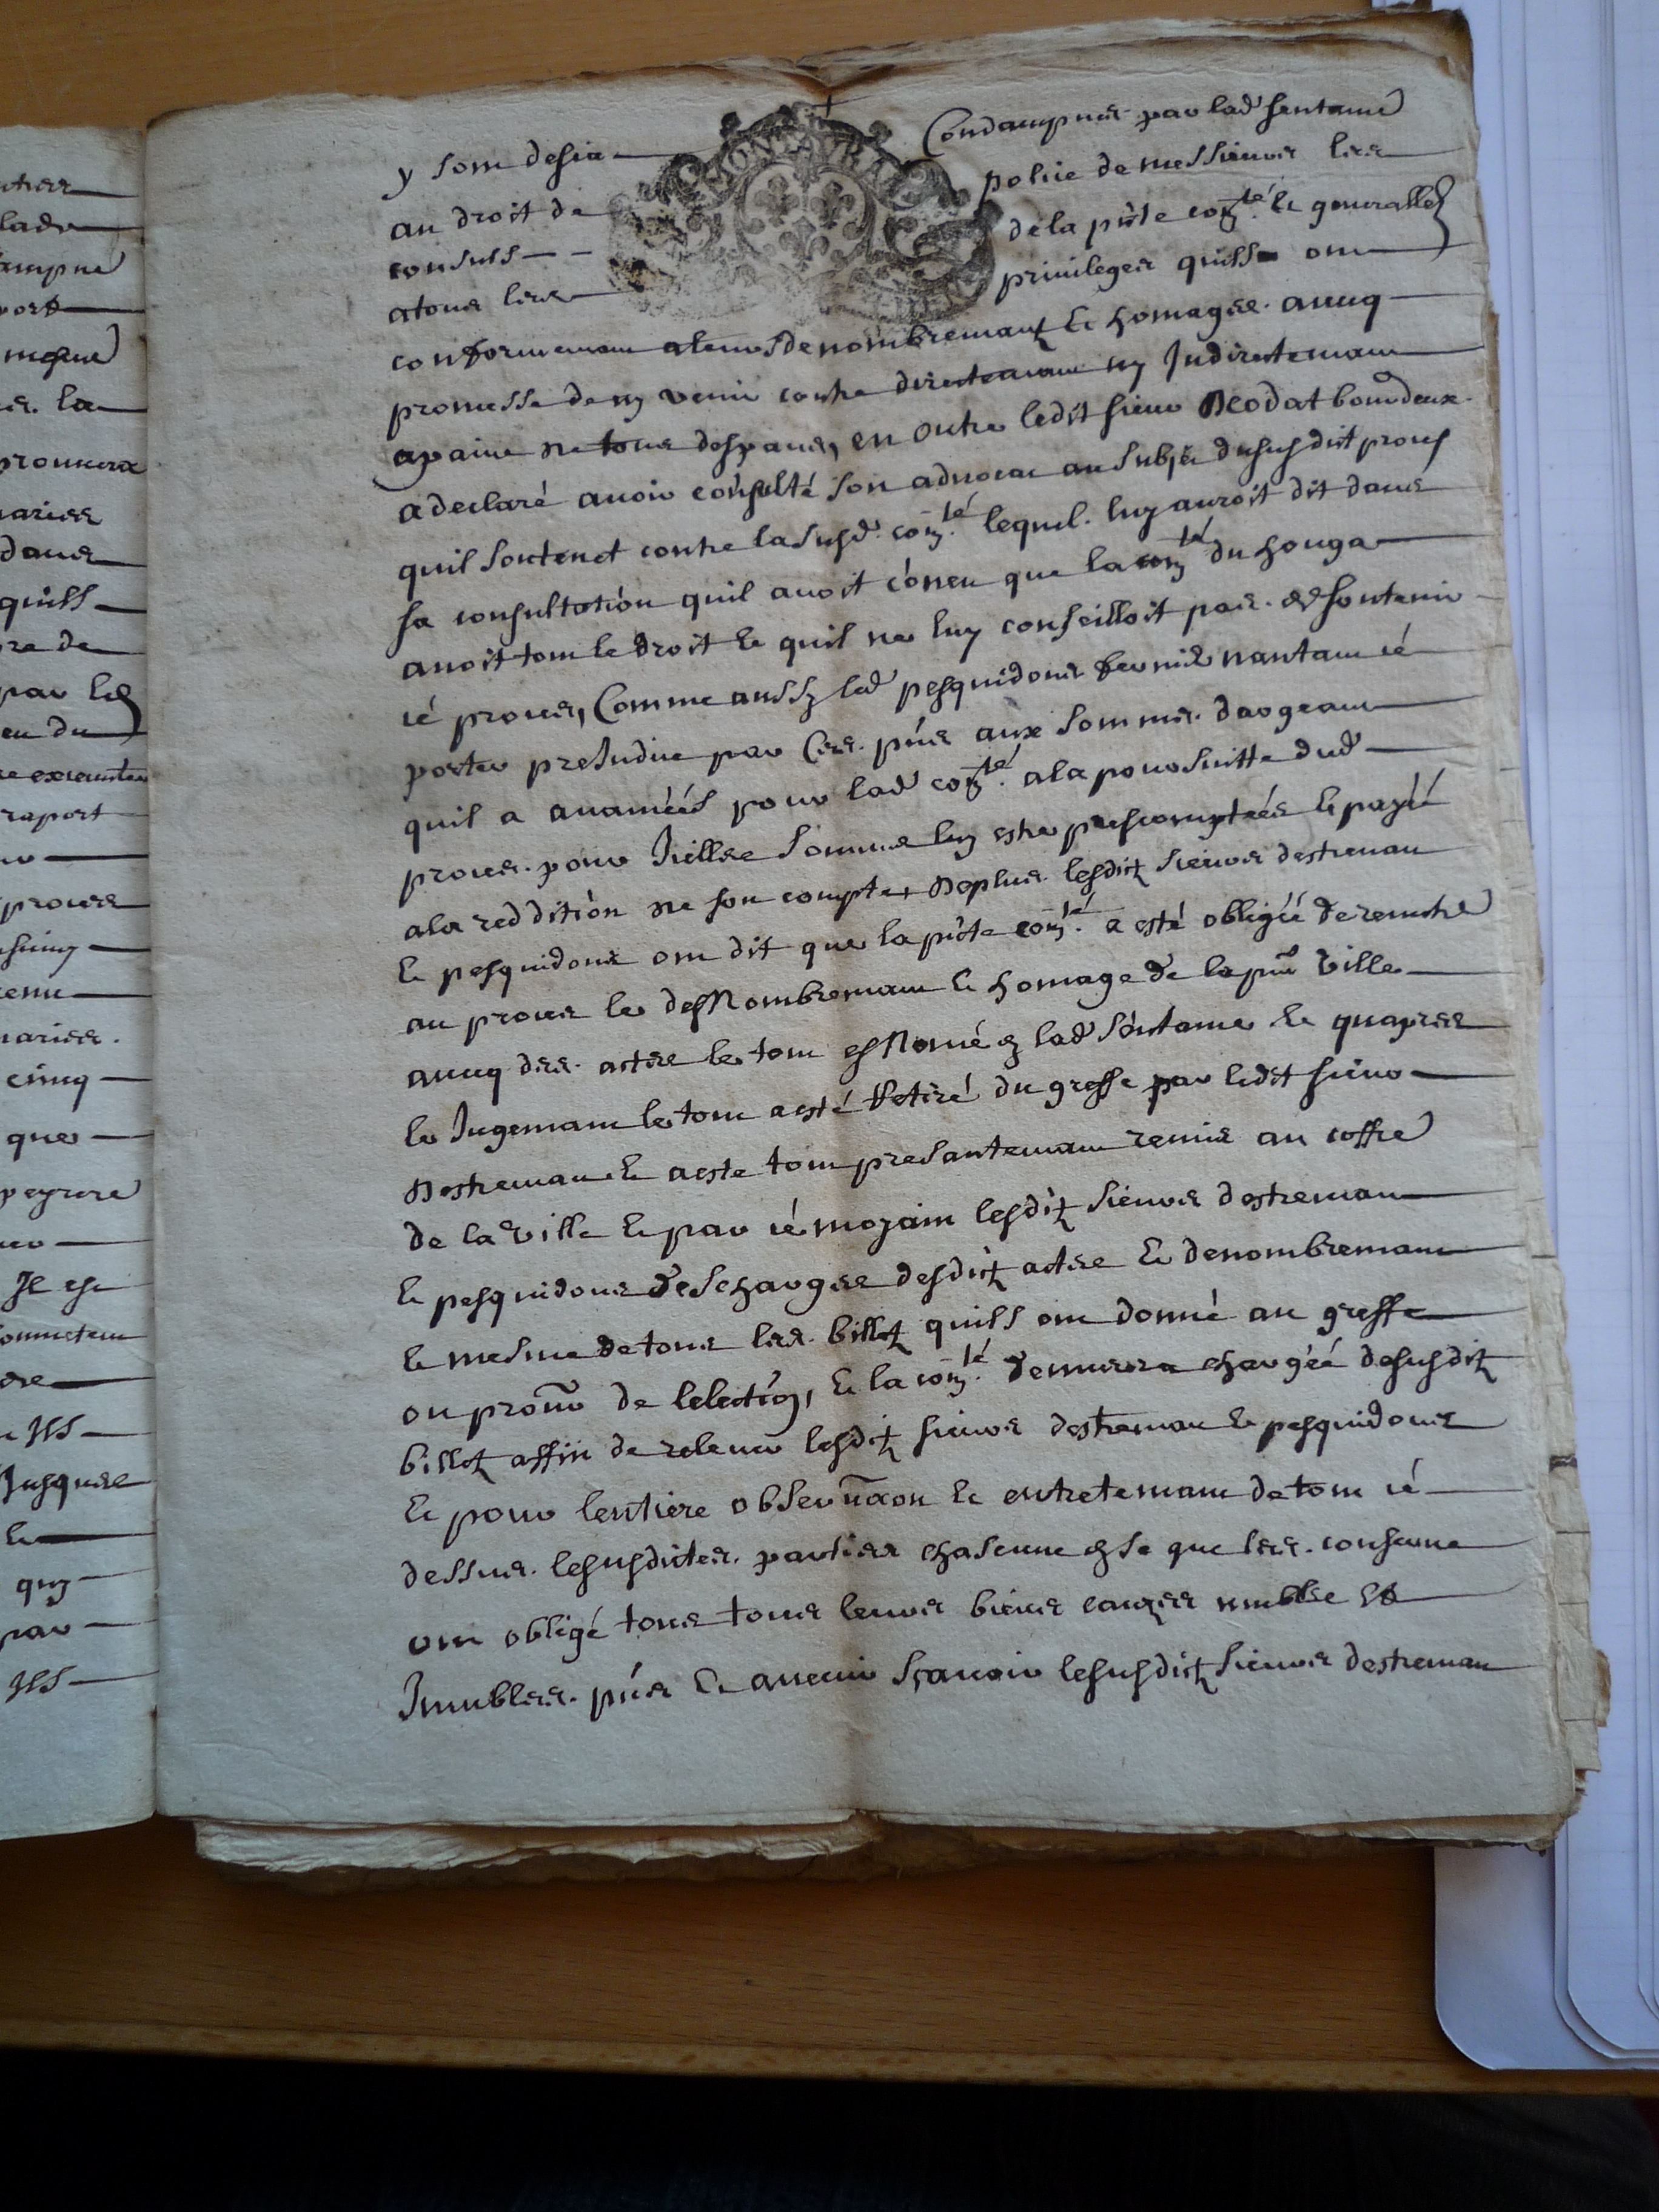 y sont desia Condampnés par lad sentance
au droit de police de messieurs les
consuls de la pnte comte et generallez
a tous les privileges quills ont
conformement a leurs denombremant et homages avecq
promesse de ny venir contre directemant ny Indirectemant
a paine de tous despans, en outre ledit sieur Deodat bourdeux
a declaré avoir consulté son advocat au subjet dususdict proces
quil soutenet contre la susd comte lequel luy auroit dit dans
sa consultation quil avoit coneu que la comte du houga
avoit tout le droit et quil ne luy conseilloit pas de soutenir
cé proces, Comme aussy led pesquidous sans
porter presudice par Ces pntes aux sommes dargeant
quil a avancées pour lad comte a la poursuitte dud
proces pour Icelles sommes luy estre prescomptées et payéé
a la reddition de son compte, Deplus lesdits sieurs destremau
et pesquidous ont dit que la pnte comte a esté obligéé de remetre
au proces le desNombremant et homage de la pnt ville
avecq des actes le tout esNoncé en lad sentance et quapres
le Jugemant le tout a esté Retiré du greffe par ledit sieur
Destremau et a este tout presantemant remis au coffre
de la ville et par cé moyain lesdits sieurs destremau
et pesquidous deschargés desdits actes et denombremant
et mesme de tous les billets quills ont donné au greffe
ou procur de lelection, et la comte demurera chargéé desusdits
billets affin de relever lesdits sieurs destremau et pesquidous
et pour lentiere observaon et entretemant de tout cé
dessus les susdictes parties chascune en se que les conserne
ont obligé tous tous leurs biens causes mubles et
Inmubles pns et avenir sçavoir lesusdits sieurs destremau